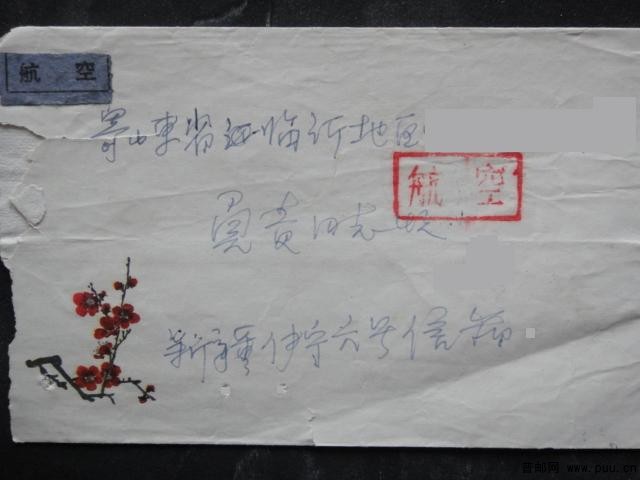 航 空
寄山东省临沂地区
航 空
同志收
新疆伊宁六号信箱
普邮网 www.puu.cn